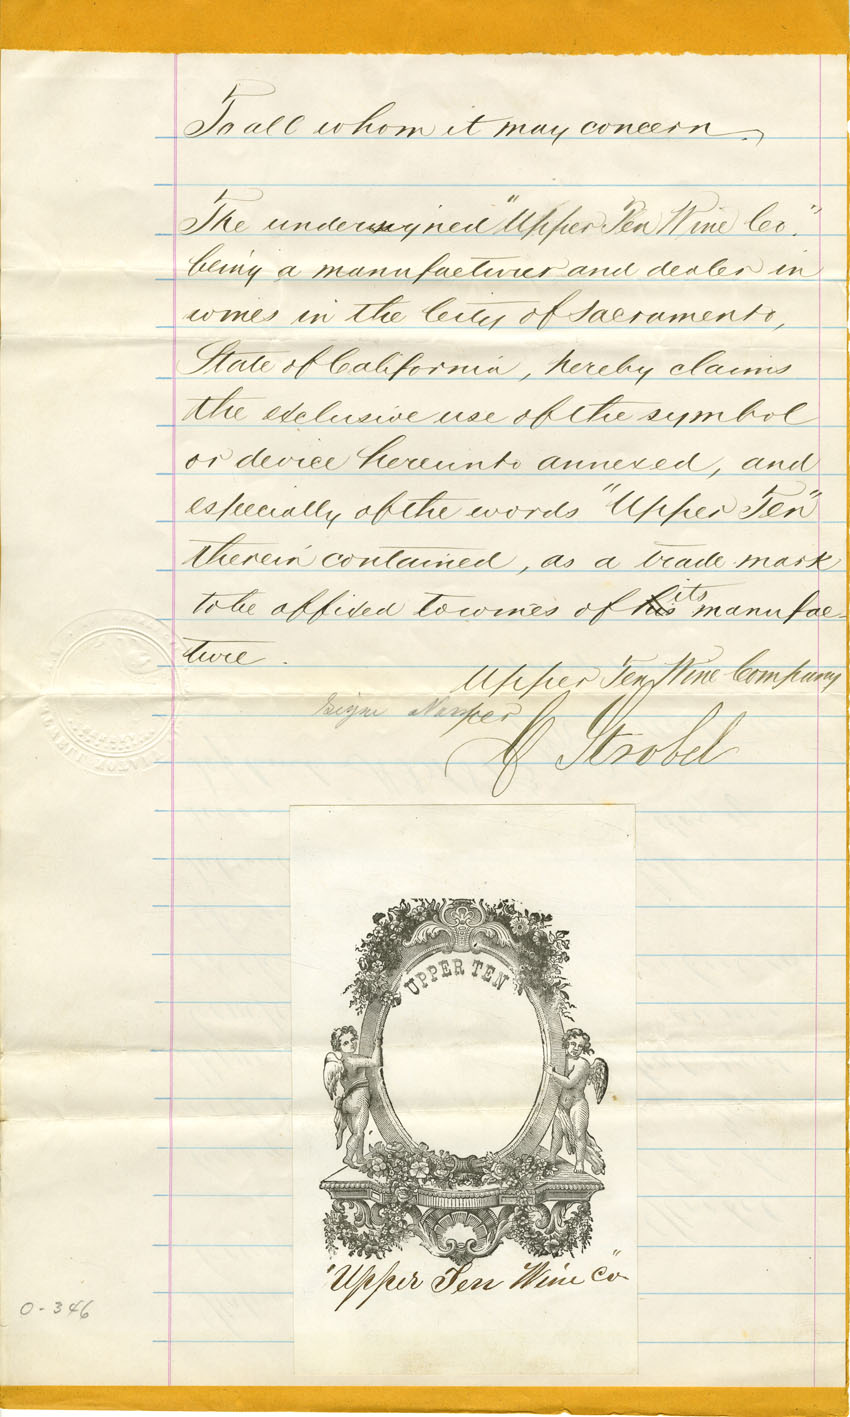 To all whom it may concern.
The undersigned "Upper Ten Wine Co."
being a manufacturer and dealer in
wines in the City of Sacramento,
State of California, hereby claims
the exclusive use of the symbol
or device hereunto annexed, and
especially of the words "Upper Ten"
therein contained, as a trade mark
to be affixed to wines of his its manufac-
ture.
Upper Ten Wine Company
per
C Strobel
UPPER TEN
"Upper Ten Wine Co"
0-346